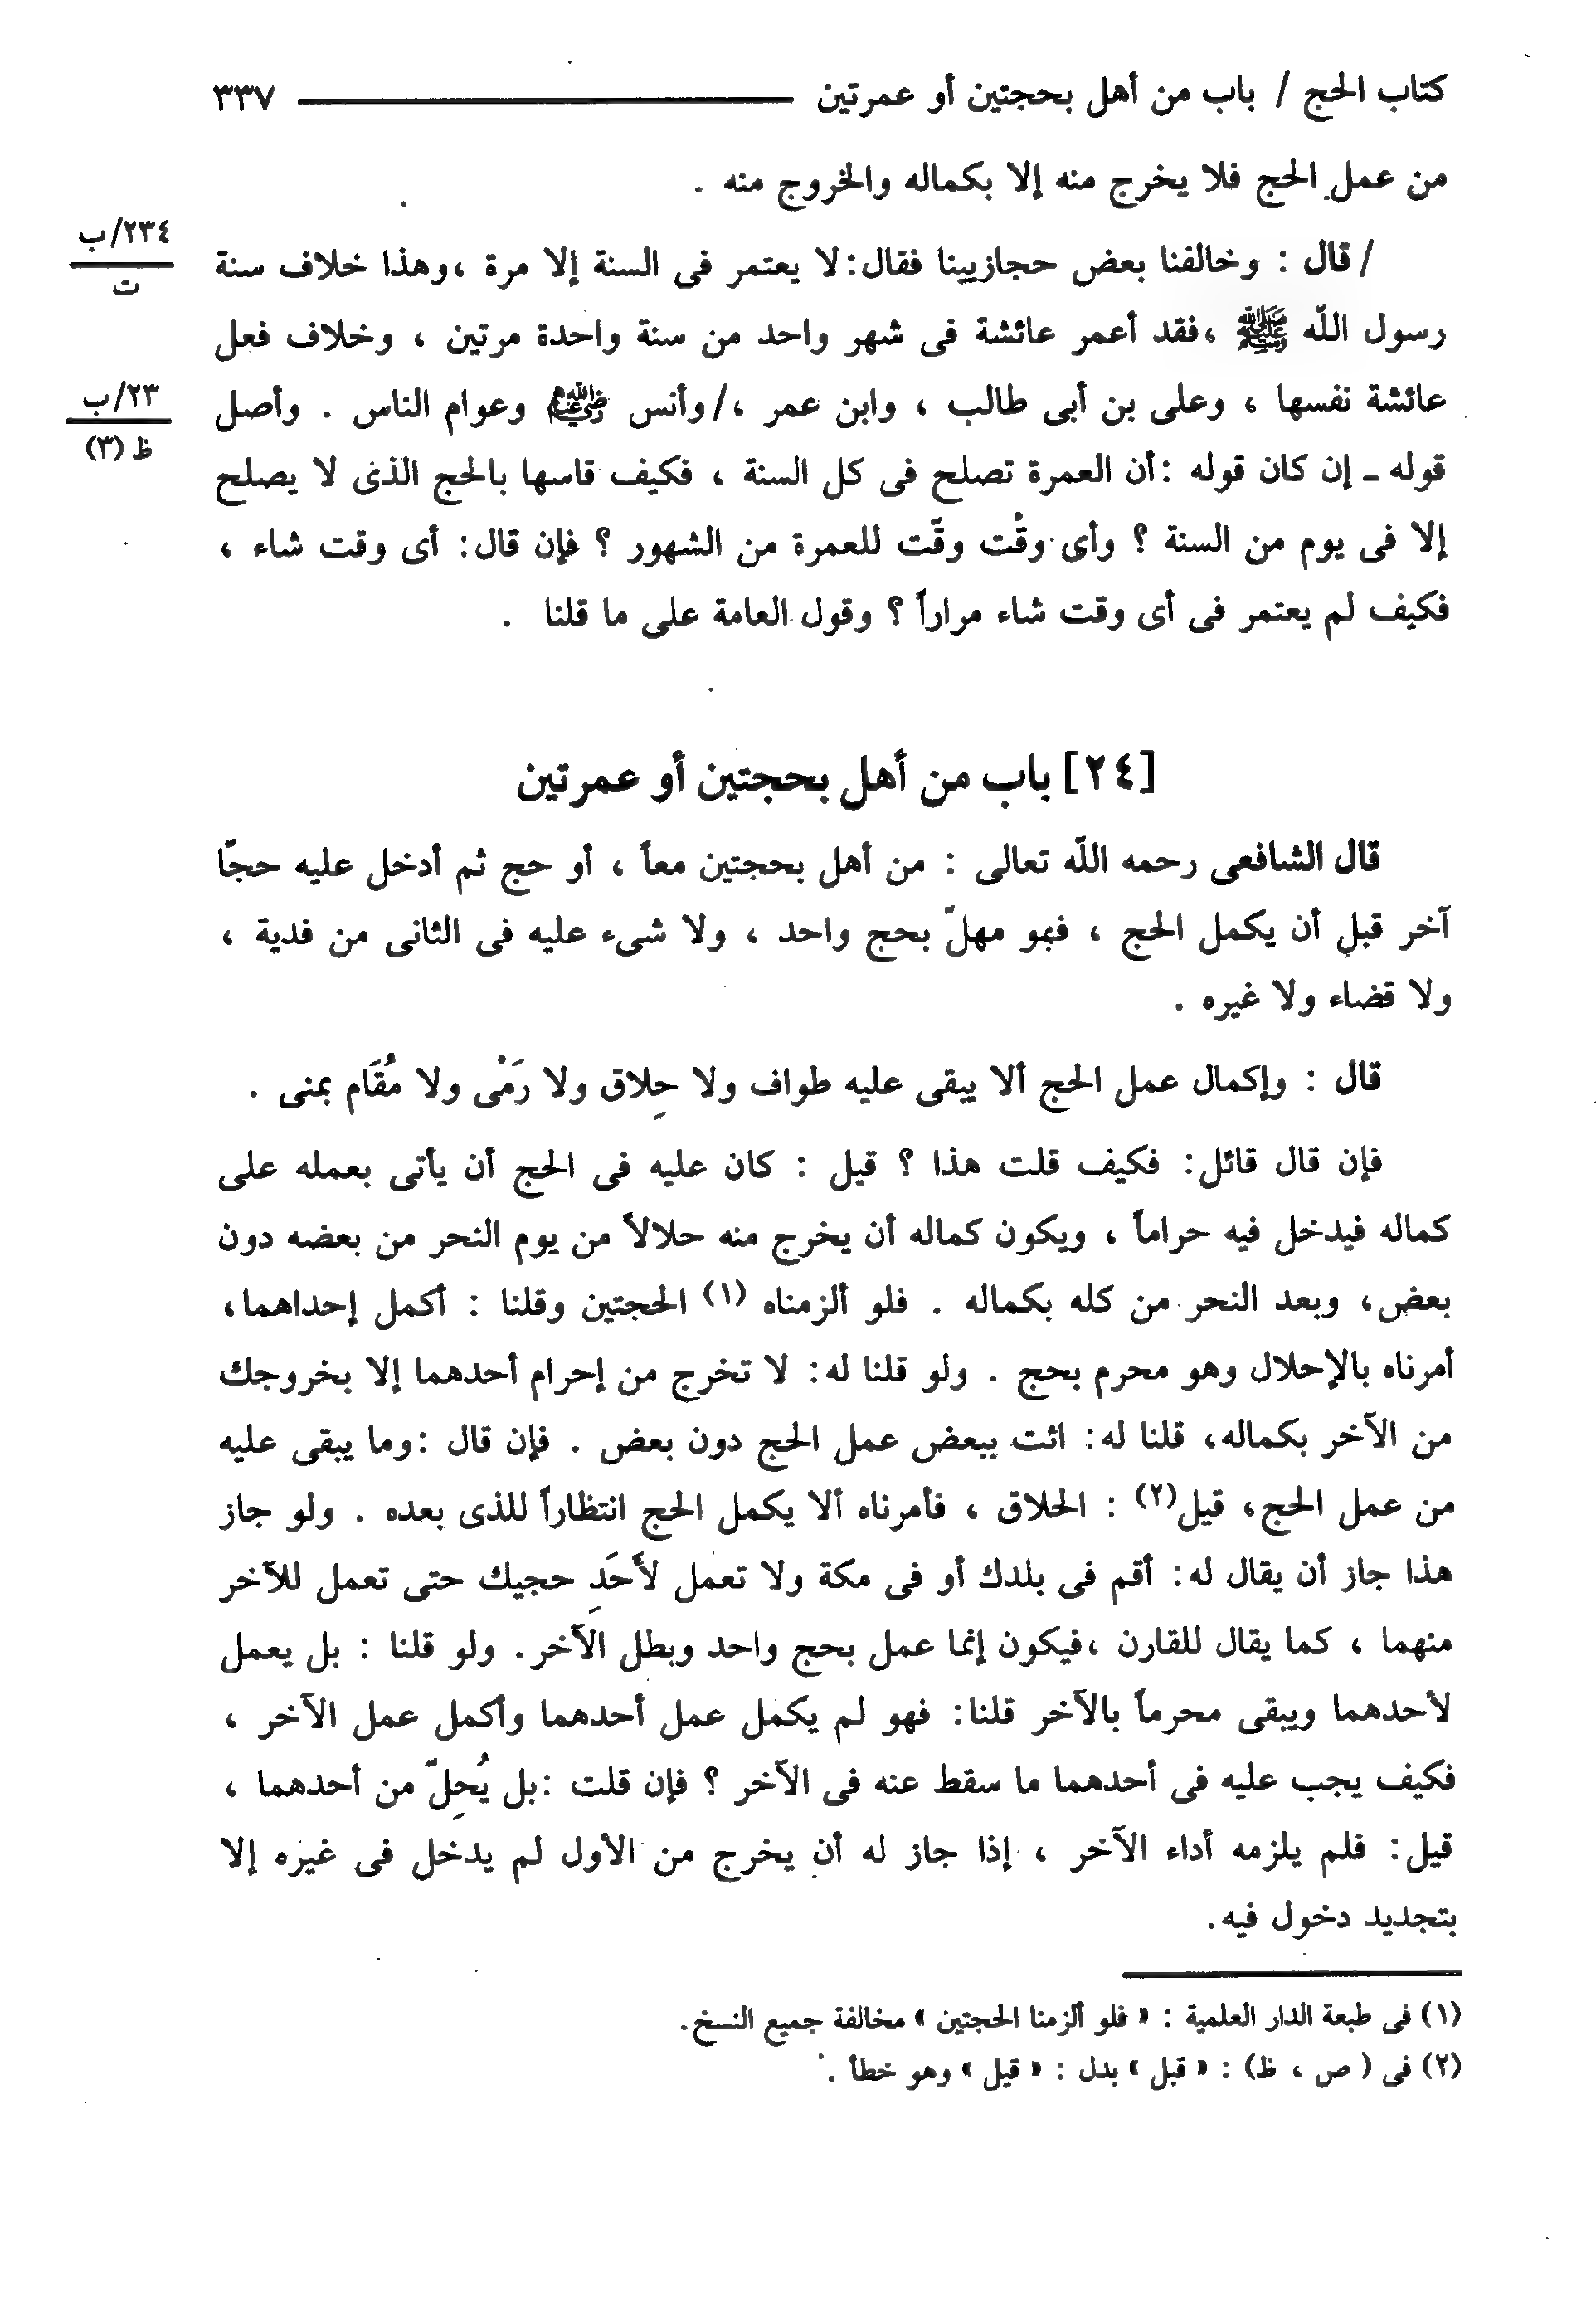 كتاب الحج / باب من أهل بحجتين أو عمرتين ٣٣٧
من عمل الحج فلا يخرج منه إلا بكماله والخروج منه .
/ قال : وخالفنا بعض حجازيينا فقال: لا يعتمر فى السنة إلا مرة ،وهذا خلاف سنة
٢٣٤/ب
ت
رسول اللّه ﷺ ،فقد أعمر عائشة فى شهر واحد من سنة واحدة مرتين ، وخلاف فعل
عائشة نفسها ، وعلى بن أبى طالب ، وابن عمر ،/ وأنس رضي الله عنهم وعوام الناس . وأصل
٢٣/ب
ظ (٣)
قوله ـ إن كان قوله :أن العمرة تصلح فى كل السنة ، فكيف قاسها بالحج الذى لا يصلح
إلا فى يوم من السنة ؟ وأى وقْت وقّت للعمرة من الشهور ؟ فإن قال: أى وقت شاء ،
فكيف لم يعتمر فى أى وقت شاء مراراً ؟ وقول العامة على ما قلنا .
[٢٤] باب من أهل بحجتين أو عمرتين
قال الشافعى رحمه اللّه تعالى : من أهل بحجتين معاً ، أو حج ثم أدخل عليه حجّا
آخر قبل أن يكمل الحج ، فهو مهلّ بحج واحد ، ولا شىء عليه فى الثانى من فدية ،
ولا قضاء ولا غيره .
قال : وإكمال عمل الحج ألا يبقى عليه طواف ولا حِلاق ولا رَمْى ولا مُقَام بمنى .
فإن قال قائل: فكيف قلت هذا ؟ قيل : كان عليه فى الحج أن يأتى بعمله على
كماله فيدخل فيه حراماً ، ويكون كماله أن يخرج منه حلالاً من يوم النحر من بعضه دون
بعض، وبعد النحر من كله بكماله . فلو ألزمناه (١) الحجتين وقلنا : أكمل إحداهما،
أمرناه بالإحلال وهو محرم بحج . ولو قلنا له: لا تخرج من إحرام أحدهما إلا بخروجك
من الآخر بكماله، قلنا له: ائت ببعض عمل الحج دون بعض . فإن قال :وما يبقى عليه
من عمل الحج، قيل(٢) : الحلاق ، فأمرناه ألا يكمل الحج انتظاراً للذى بعده . ولو جاز
هذا جاز أن يقال له: أقم فى بلدك أو فى مكة ولا تعمل لأَحَدِ حجيك حتى تعمل للآخر
منهما ، كما يقال للقارن ،فيكون إنما عمل بحج واحد وبطل الآخر. ولو قلنا : بل يعمل
لأحدهما ويبقى محرماً بالآخر قلنا: فهو لم يكمل عمل أحدهما وأكمل عمل الآخر ،
فكيف يجب عليه فى أحدهما ما سقط عنه فى الآخر ؟ فإن قلت :بل يُحِلّ من أحدهما ،
قيل: فلم يلزمه أداء الآخر ، إذا جاز له أن يخرج من الأول لم يدخل فى غيره إلا
بتجديد دخول فيه.
(١) فى طبعة الدار العلمية : « فلو ألزمنا الحجتين » مخالفة جميع النسخ.
(٢) فى ( ص ، ظ) : « قبل » بدل : « قيل » وهو خطأ .